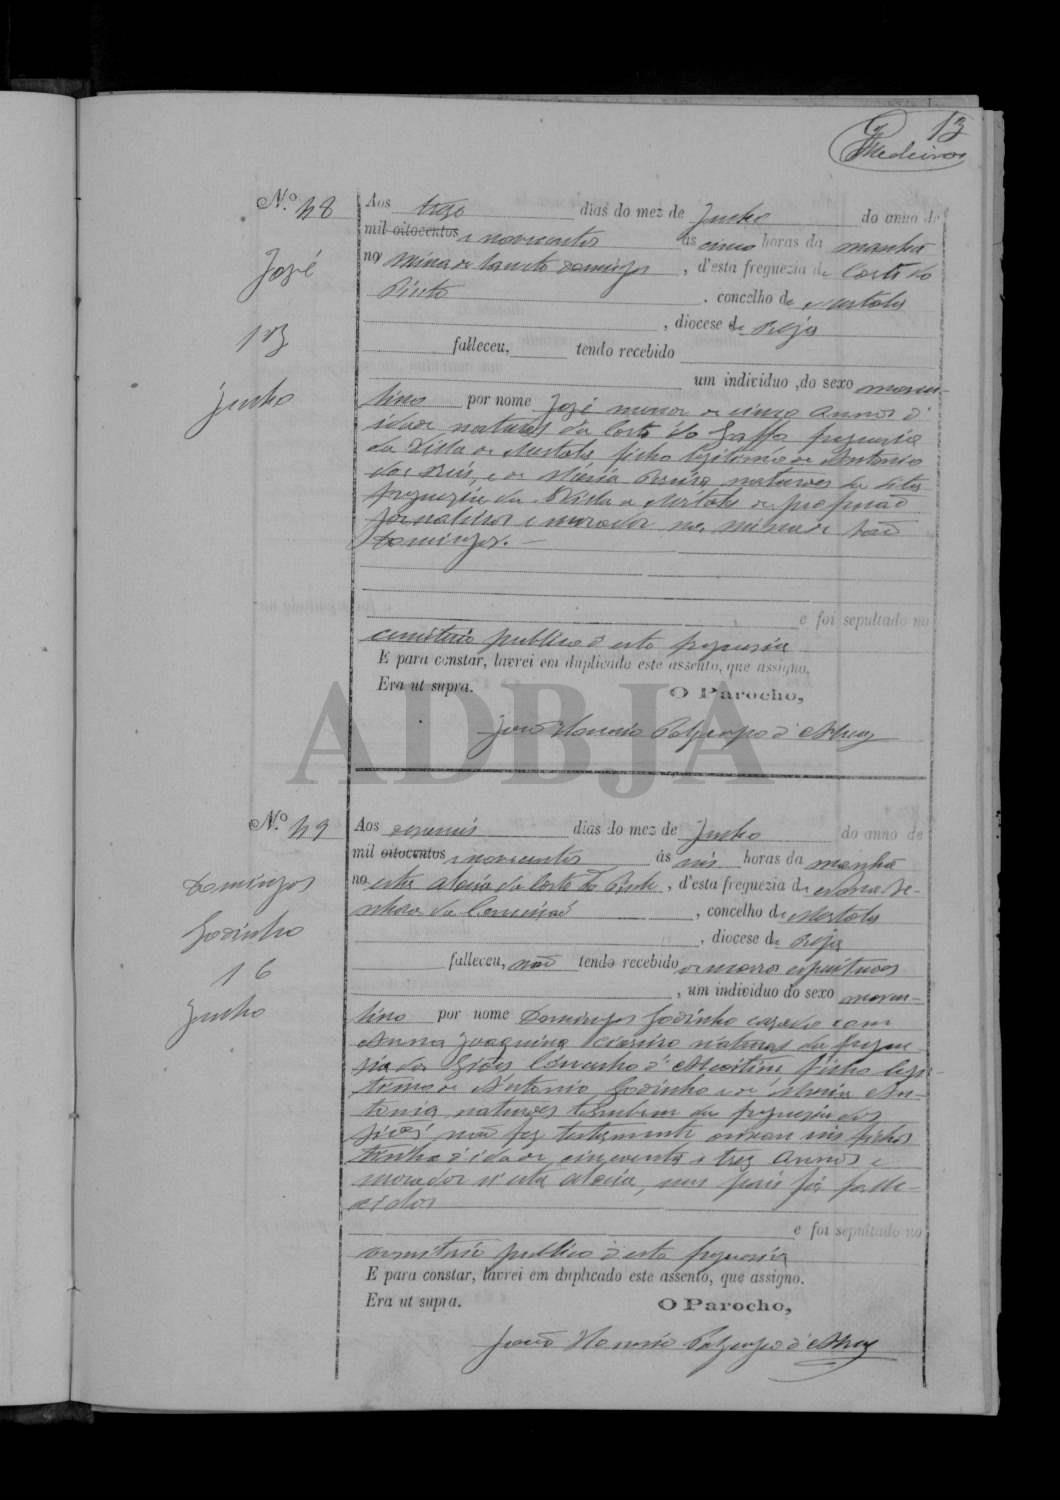 13
Medeiros
N.º 48
José
13
Junho
Aos treze dias do mez de Junho do anno de
mil oitocentos e novecentos ás cinco horas da manhã
no Mina de Saneto Domingos, d'esta freguezia de Corte do
Pinto, concelho de Mertola
, diocese de Beja
falleceu, tendo recebido
um individuo, do sexo mascu-
lino por nome José menor de cinco annos d'
idade natural da Corte do Gaffo freguezia
da Villa de Mertola filho legitimo de Antonio
dos Reis, e de Maria naturaes da dita
freguezia da Villa de Mertola de profissão
jornaleiros e morador na mina de São
Domingos.
e foi sepultado no
cemiterio publico d'esta freguezia
E para constar, lavrei em duplicado este assento, que assigno.
Era ut supra.
O Parocho,
João Honorio d'Abreu
ADBJA
N.º 49
Domingos
Godinho
16
Junho
Aos dezaseis dias do mez de Junho do anno de
mil oitocentos e novecentos ás seis horas da manhã
no esta aldeia da Corte do Pinto, d'esta freguezia de Nossa Se-
nhora da Conceição, concelho de Mertola
, diocese de Beja
falleceu, não tendo recebido os socorros espirituaes
, um individuo do sexo mascu-
lino por nome Domingos Godinho casado com
Anna Joaquina natural da fregue-
zia dos Giões Concelho d'Alcoitim filho legi-
timo de Antonio Godinho e de Maria An-
tonia, naturaes tambem da freguezia dos
Giões não fez testamento deixou seis filhos
tinha d'idade cincoenta e trez annos e
morador n'esta aldeia, seus pais já falle-
cidos
e foi sepultado no
cemiterio publico d'esta freguezia
E para constar, lavrei em duplicado este assento, que assigno.
Era ut supra.
O Parocho,
João Honorio d'Abreu